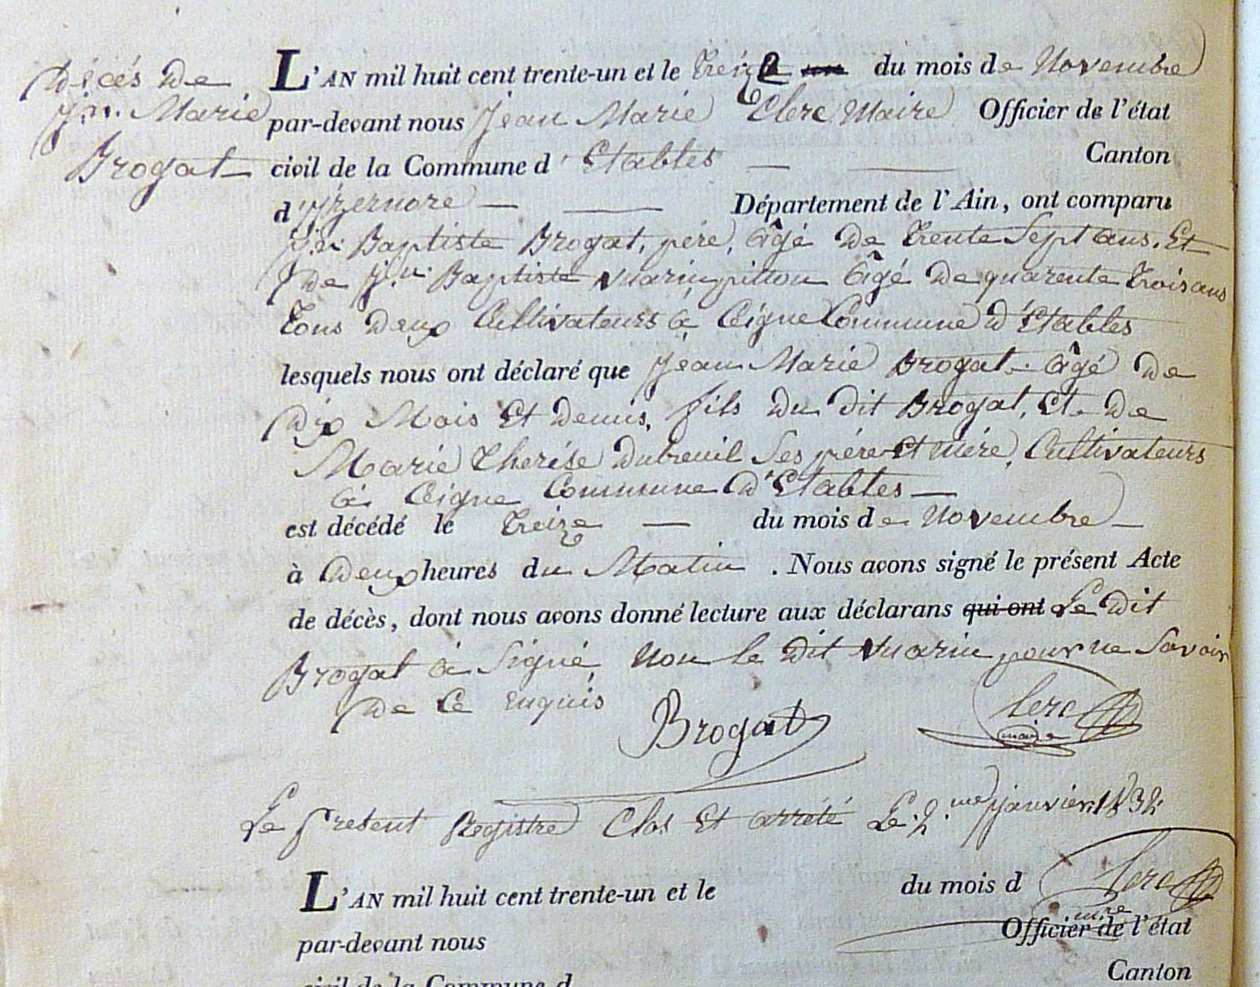 Décés De
Jn. Marie
Brogat
L'AN mil huit cent trente-un et le Treize un du mois de Novembre
par-devant nous Jean Marie Clerc Maire Officier de l'état
civil de la Commune d'Etables Canton
d'Yzernore Département de l'Ain, ont comparu
Jn. Baptiste Brogat, pére, âgé De Trente Sept ans, Et
de Jn. Baptiste Marinpitton âgé De quarente Trois ans
Tous Deux Cultivateurs à Ceigne Commune d'Etables
lesquels nous ont déclaré que Jean Marie Brogat âgé De
Dix Mois Et Demis, fils Du dit Brogat, Et De
Marie Therése Dubreuil Ses pére Et mére, Cultivateurs
à Ceigne Commune D'Etables
est décédé le Treize du mois de Novembre
à Deux heures du Matin. Nous avons signé le présent Acte
de décès, dont nous avons donné lecture aux déclarans qui ont Le Dit
Brogat à Signé, Non le Dit Marin pour ne Savoir
De Ce Enquis
Brogat Clerc
maire
Le present Registre Clos Et arrété Le 2.me janvier 1832
Clerc
mre
L'AN mil huit cent trente-un et le du mois d
par-devant nous Officier de l'état
civil de la Commune d Canton